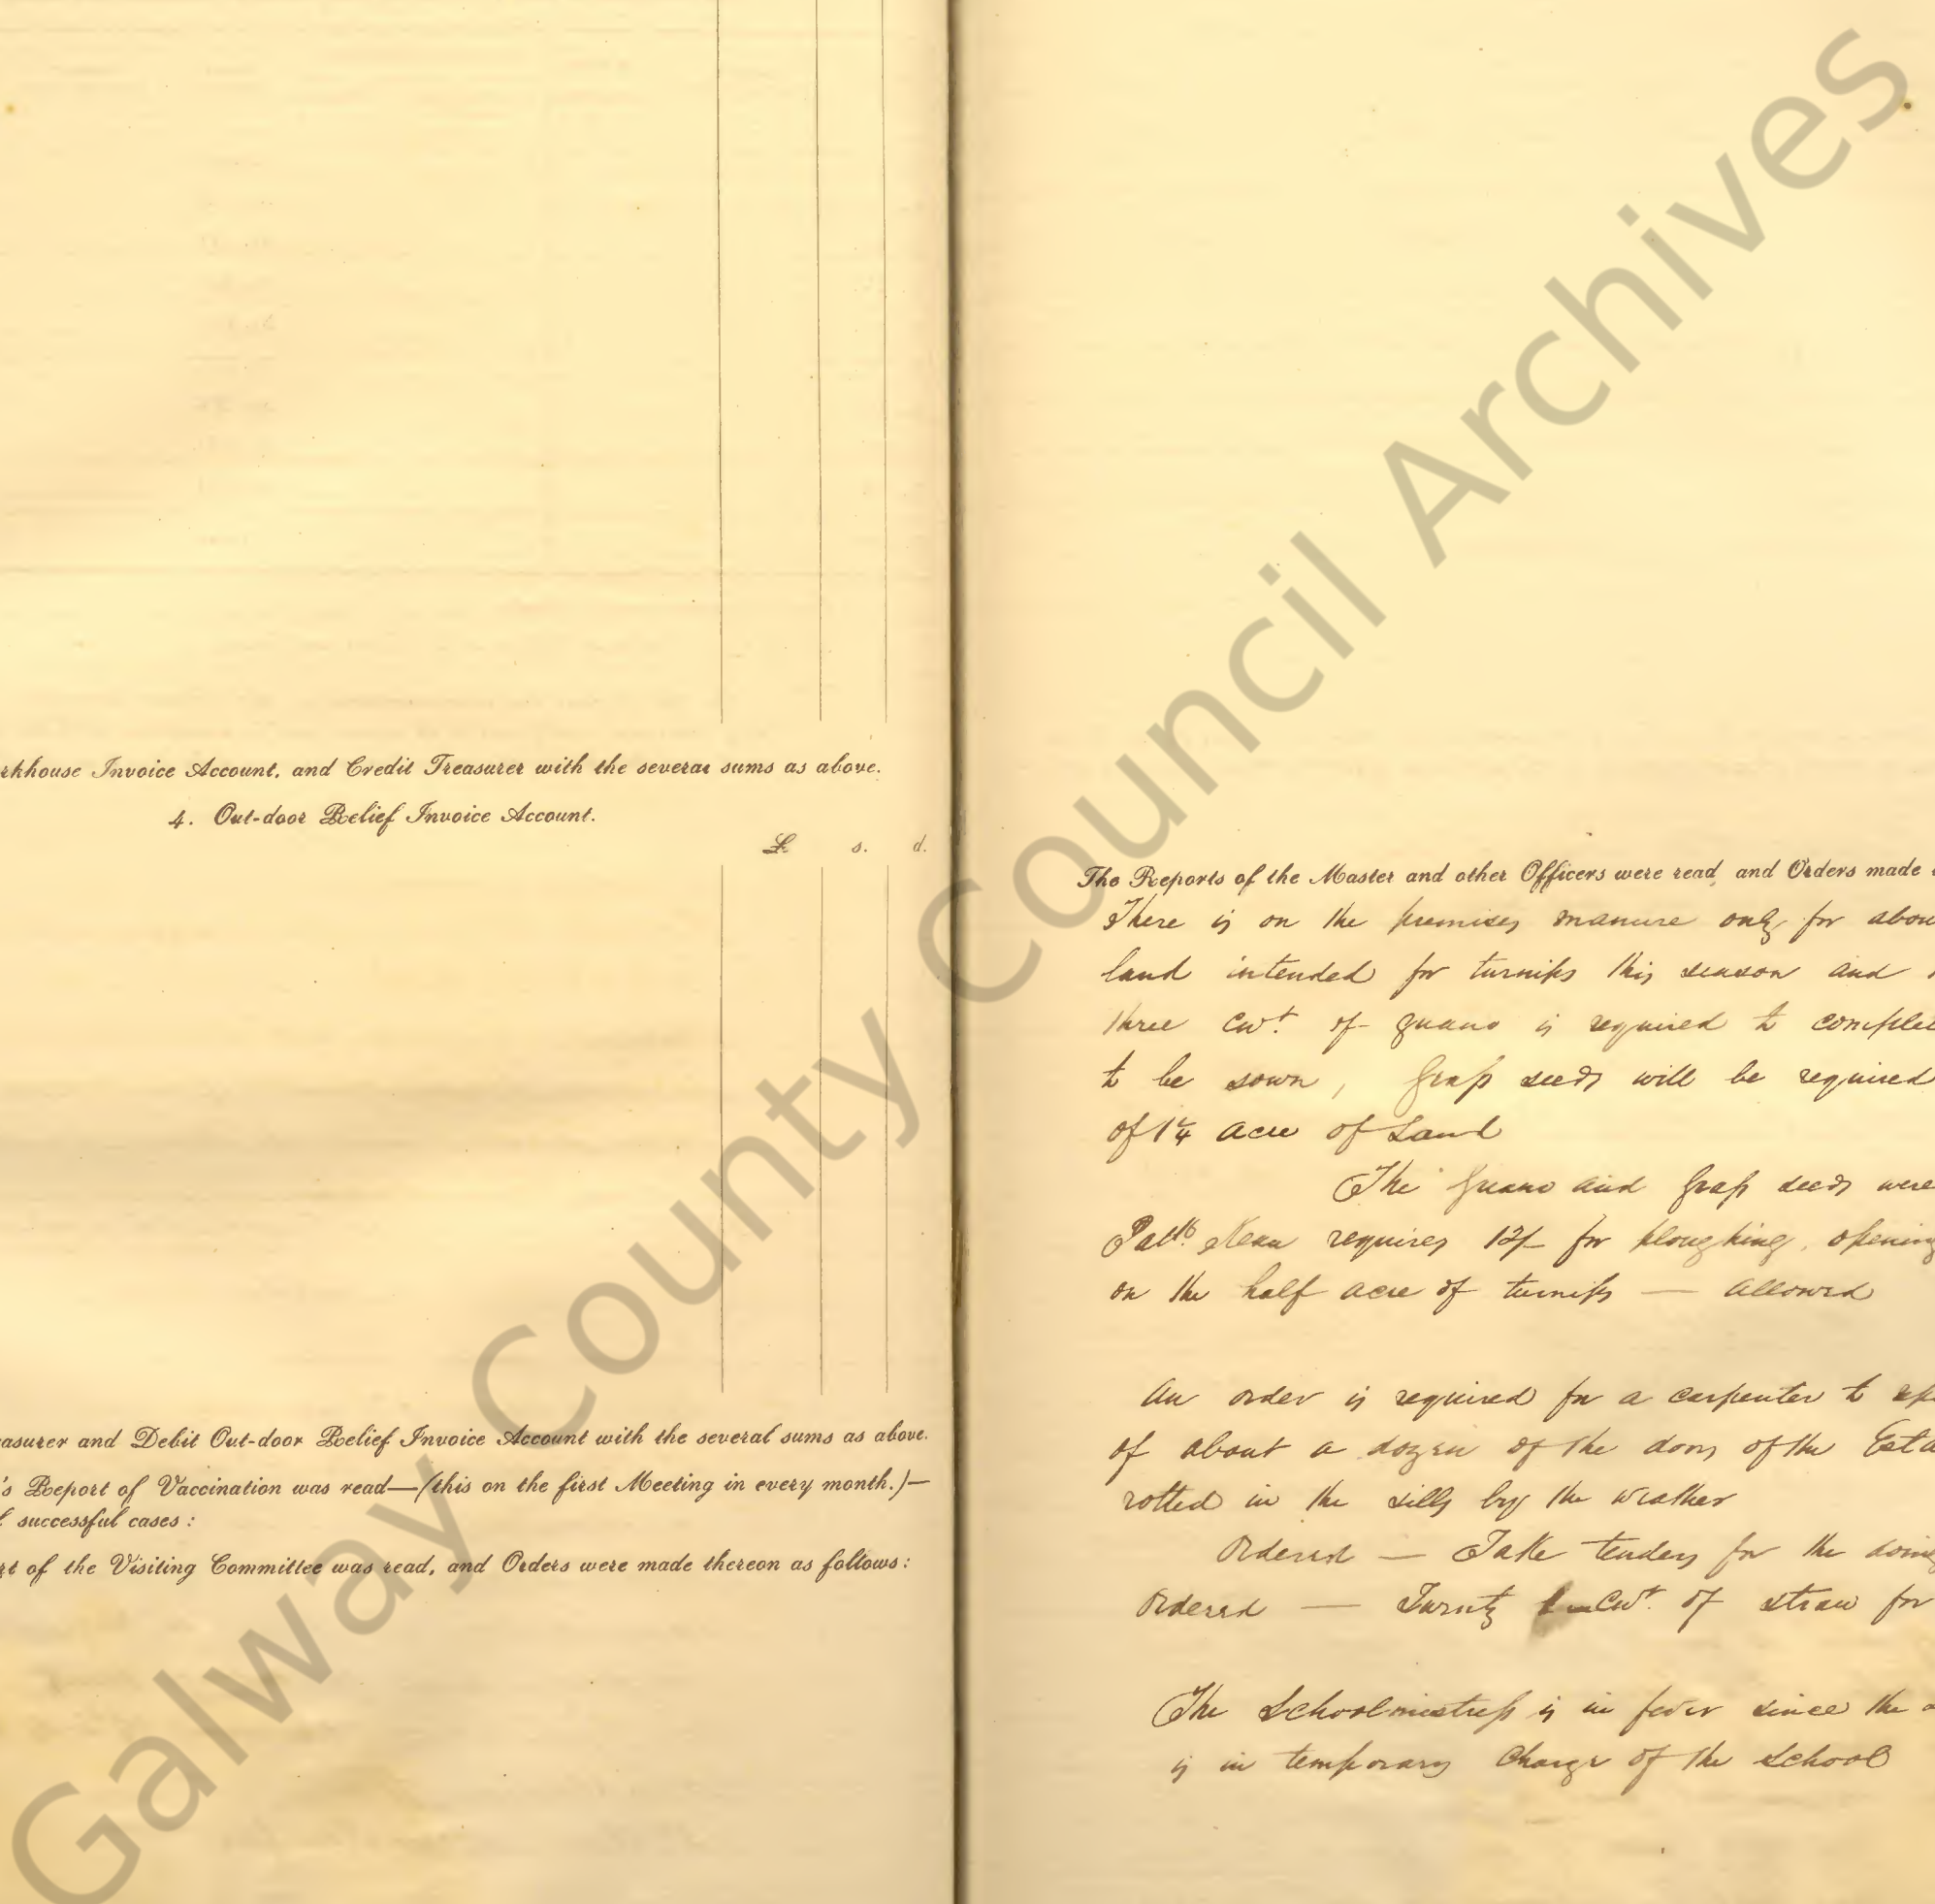 rkhouse Invoice Account, and Credit Treasurer with the several sums as above.
4. Out-door Relief Invoice Account.
£ s. d.
easurer and Debit Out-door Relief Invoice Account with the several sums as above.
's Report of Vaccination was read—(this on the first Meeting in every month.)—
l successful cases :
rt of the Visiting Committee was read, and Orders were made thereon as follows :
The Reports of the Master and other Officers were read, and Orders made
There is on the premises manure only for abou
land intended for turnips this season and
three Cwt. of guano is required to complet
to be sown, Grass seeds will be required
of 1¼ acre of Land
The Guano and Grass seeds were
Patk. requires 12/- for ploughing, opening
on the half acre of turnips — allowed
An order is required for a carpenter to
of about a dozen of the doors of the Esta
rotted in the sills by the weather
Ordered — Take tenders for the doing
Ordered — Twenty Cwt. of straw for
The Schoolmistress is in fever since the
is in temporary charge of the School
Galway County Council Archives